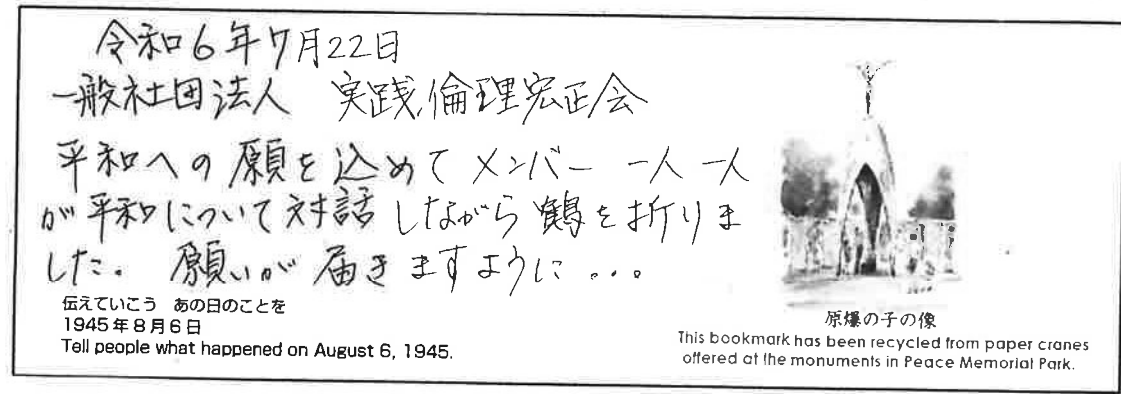 令和6年7月22日
一般社団法人 実践倫理宏正会
平和への願を込めてメンバー一人一人
が平和について対話しながら鶴を折りま
した。願いが届きますように...
伝えていこう あの日のことを
1945年8月6日
Tell people what happened on August 6, 1945.
原爆の子の像
This bookmark has been recycled from paper cranes
offered at the monuments in Peace Memorial Park.